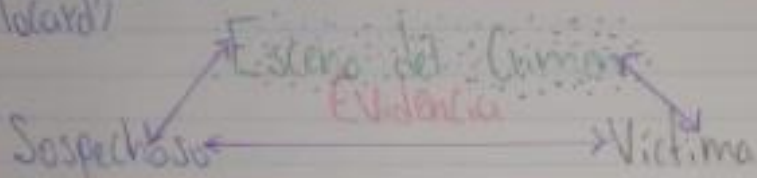 Locard?
Escena del Crimen
Evidencia
Sospechoso
Víctima